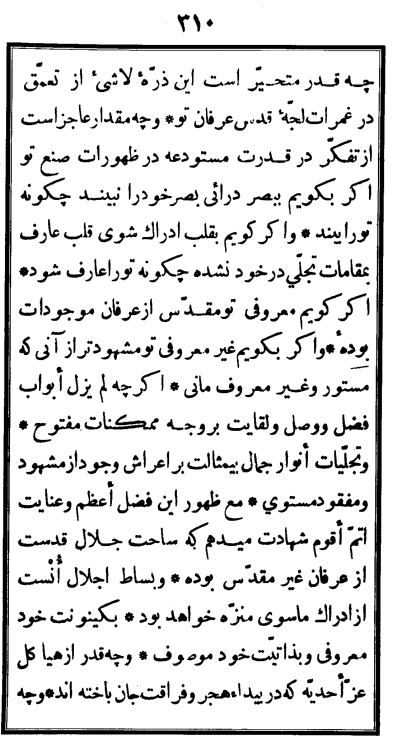 ٣١٠
چه قدر متحیّر است این ذرّهٔ لاشیٔ از تعمّق
در غمرات لجّهٔ قدس عرفان تو * وچه مقدار عاجز است
از تفکّر در قدرت مستودعه در ظهورات صنع تو
اکر بکویم ببصر درائی بصر خود را نبیند چکونه
تورا بیند * واکر کویم بقلب ادراك شوی قلب عارف
بمقامات تجلّی در خود نشده چکونه تورا عارف شود *
اکر کویم معروفی تو مقدّس از عرفان موجودات
بودهٔ * واکر بکویم غیر معروفی تو مشهودتر از آنی که
مستور وغیر معروف مانی * اکرچه لم یزل أبواب
فضل ووصل ولقایت بر وجه ممکنات مفتوح *
وتجلّیات أنوار جمال بیمثالت بر اعراش وجود از مشهود
ومفقود مستوي * مع ظهور این فضل أعظم وعنایت
اتمّ أقوم شهادت میدهم که ساحت جلال قدست
از عرفان غیر مقدّس بوده * وبساط اجلال أُنْست
از ادراك ماسوی منزّه خواهد بود * بکینونت خود
معروفی وبذاتیّت خود موصوف * وچه قدر از هیاکل
عزّ أحدیّه که در بیداء هجر وفراقت جان باخته اند * وچه